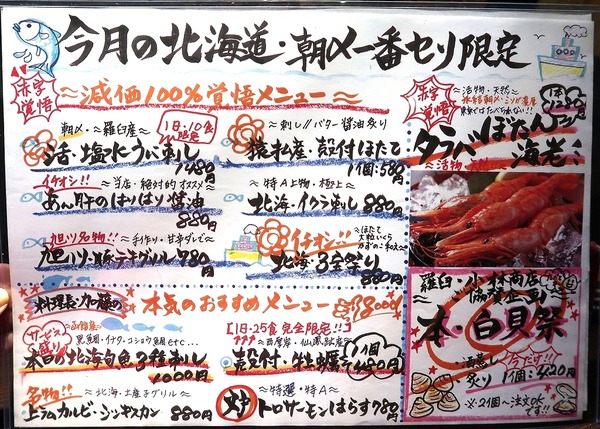 今月の北海道・朝〆一番セリ限定
赤字覚悟
～減価100%覚悟メニュー～
朝〆・羅臼産～
1日・10食限定
活・塩水うに刺し
1480円
～刺し!!バター醤油炙り
猿払産・殻付ほたて
1個:580円
イチオシ!!
～当店・絶対的オススメ～
あん肝のはりはり醤油
880円
～特A上物・極上～
北海・イクラ刺し 880円
旭川名物!!
～手作り・甘辛ダレで～
旭川・豚テキグリル 780円
イチオシ!!
～ほたて
大粒いくら
かずのこ和え～
北海・3宝祭り
880円
赤字覚悟
～活物・天然～
1本:1280円
タラバほたん海老
～活物
料理長加藤の
本気のおすすめメニュー
サービス盛り!!
～函館産～
黒鯛・イナダ・コショウ鯛 etc...
本日の北海旬魚3種刺し
1000円
【1日・25食 完全限定!!】
～西厚岸・仙鳳趾産～
殻付・牡蠣
1個:480円
名物!!
～北海・土産子グリル～
上ラムカルビ・ジンギスカン 880円
炉
～特選・特A～
トロサーモンはらす 780円
羅臼・小林商店
(協賛企画)
本・白貝祭
・酒蒸し
・炙り
今だけ!!
1個:420円
※2個～注文OKです!!